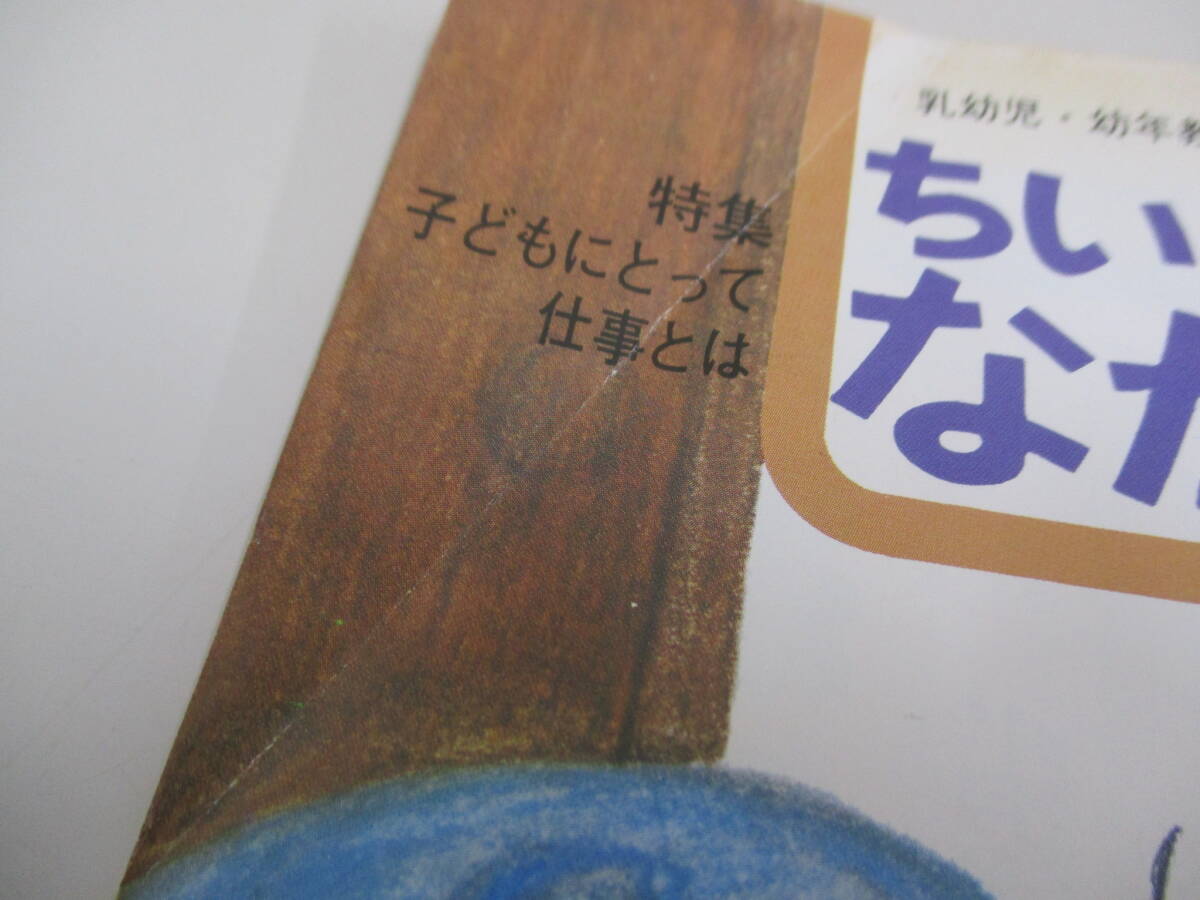 特集
子どもにとって
仕事とは
乳幼児・幼年教
ちい
な